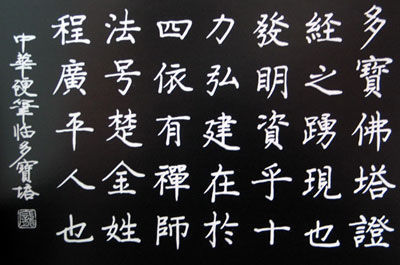 多寶佛塔證
經之踴現也
發明資乎十
力弘建在於
四依有禪師
法号楚金姓
程廣平人也
中華硬筆临多寶塔